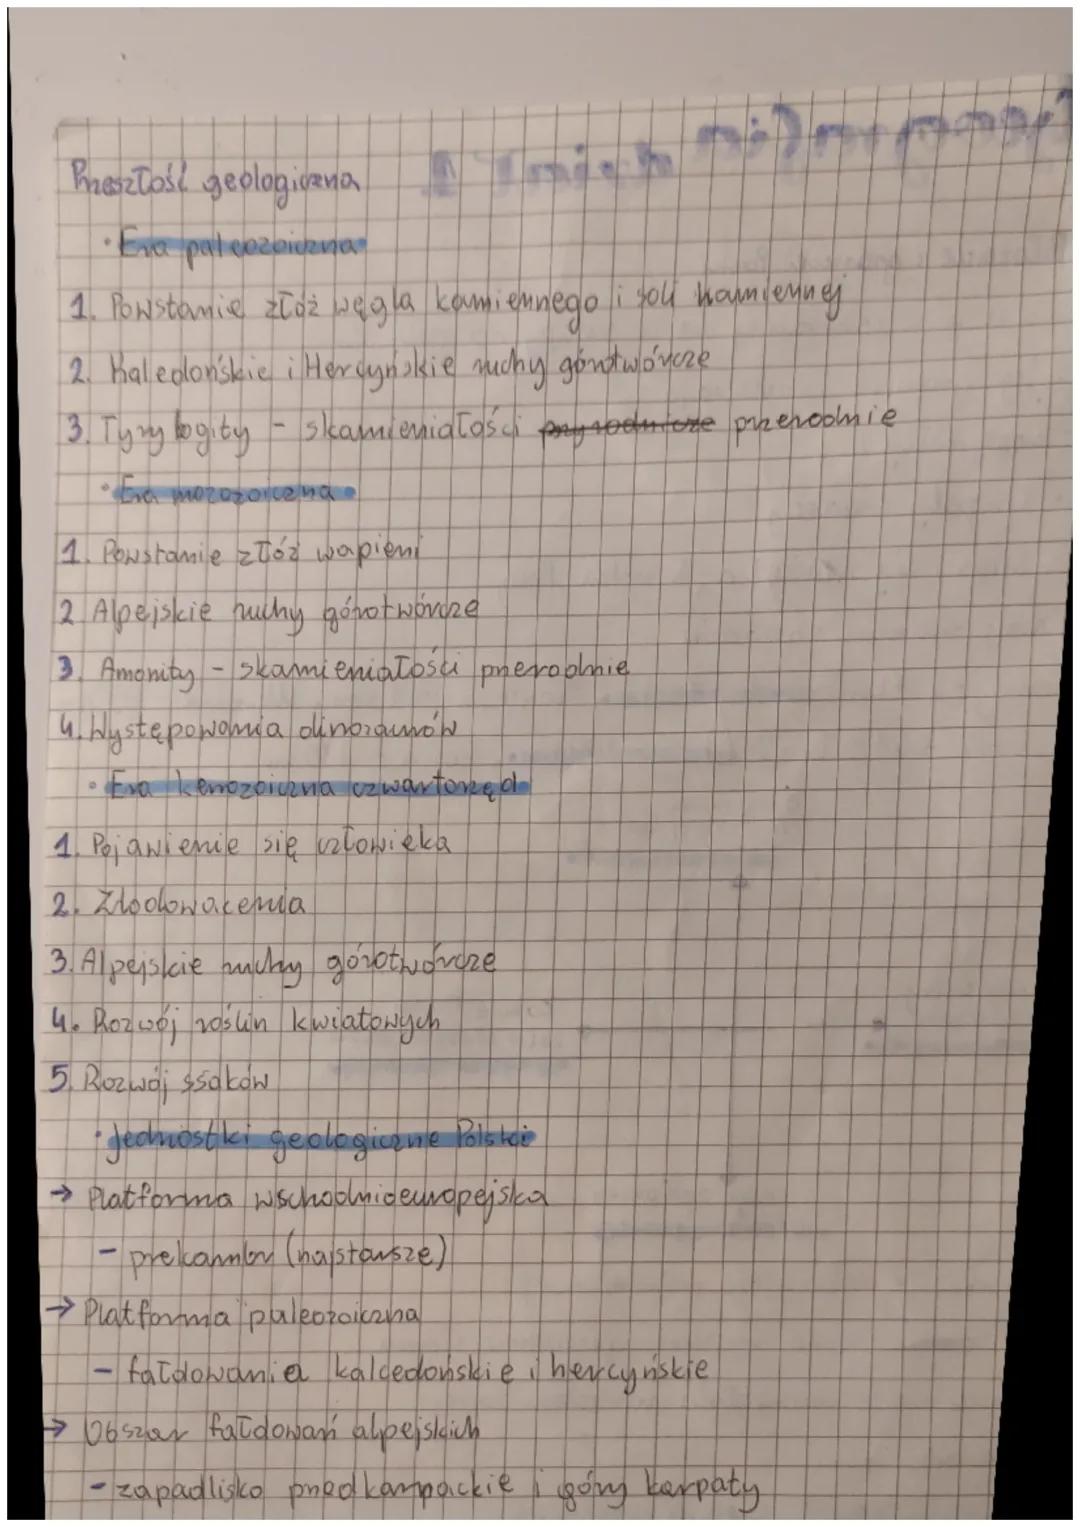 Przeszłość geologiczna
• Era paleozoiczna
1. Powstanie złóż węgla kamiennego i soli kamiennej
2. Kaledońskie i Hercyńskie ruchy górotwórcze
3. Tyrylogity - skamieniałości przyrodnicze przewodnie
• Era mozozoiczna
1. Powstanie złóż wapieni
2 Alpejskie ruchy górotwórcze
3. Amonity - skamieniałości przerodnie
4. Występowania dinozaurów
• Era kenozoiczna czwartorzęd
1. Pojawienie się człowieka
2. Zlodowacenia
3. Alpejskie ruchy górotwórcze
4. Rozwój roślin kwiatowych
5. Rozwój ssaków
• Jednostki geologiczne Polski
→ Platforma wschodnioeuropejska
- prekambr (najstarsze)
→ Platforma paleozoiczna
- fałdowania kalcedońskie i hercyńskie
→ Obszar fałdowań alpejskich
- zapadlisko przedkarpackie i góry karpaty